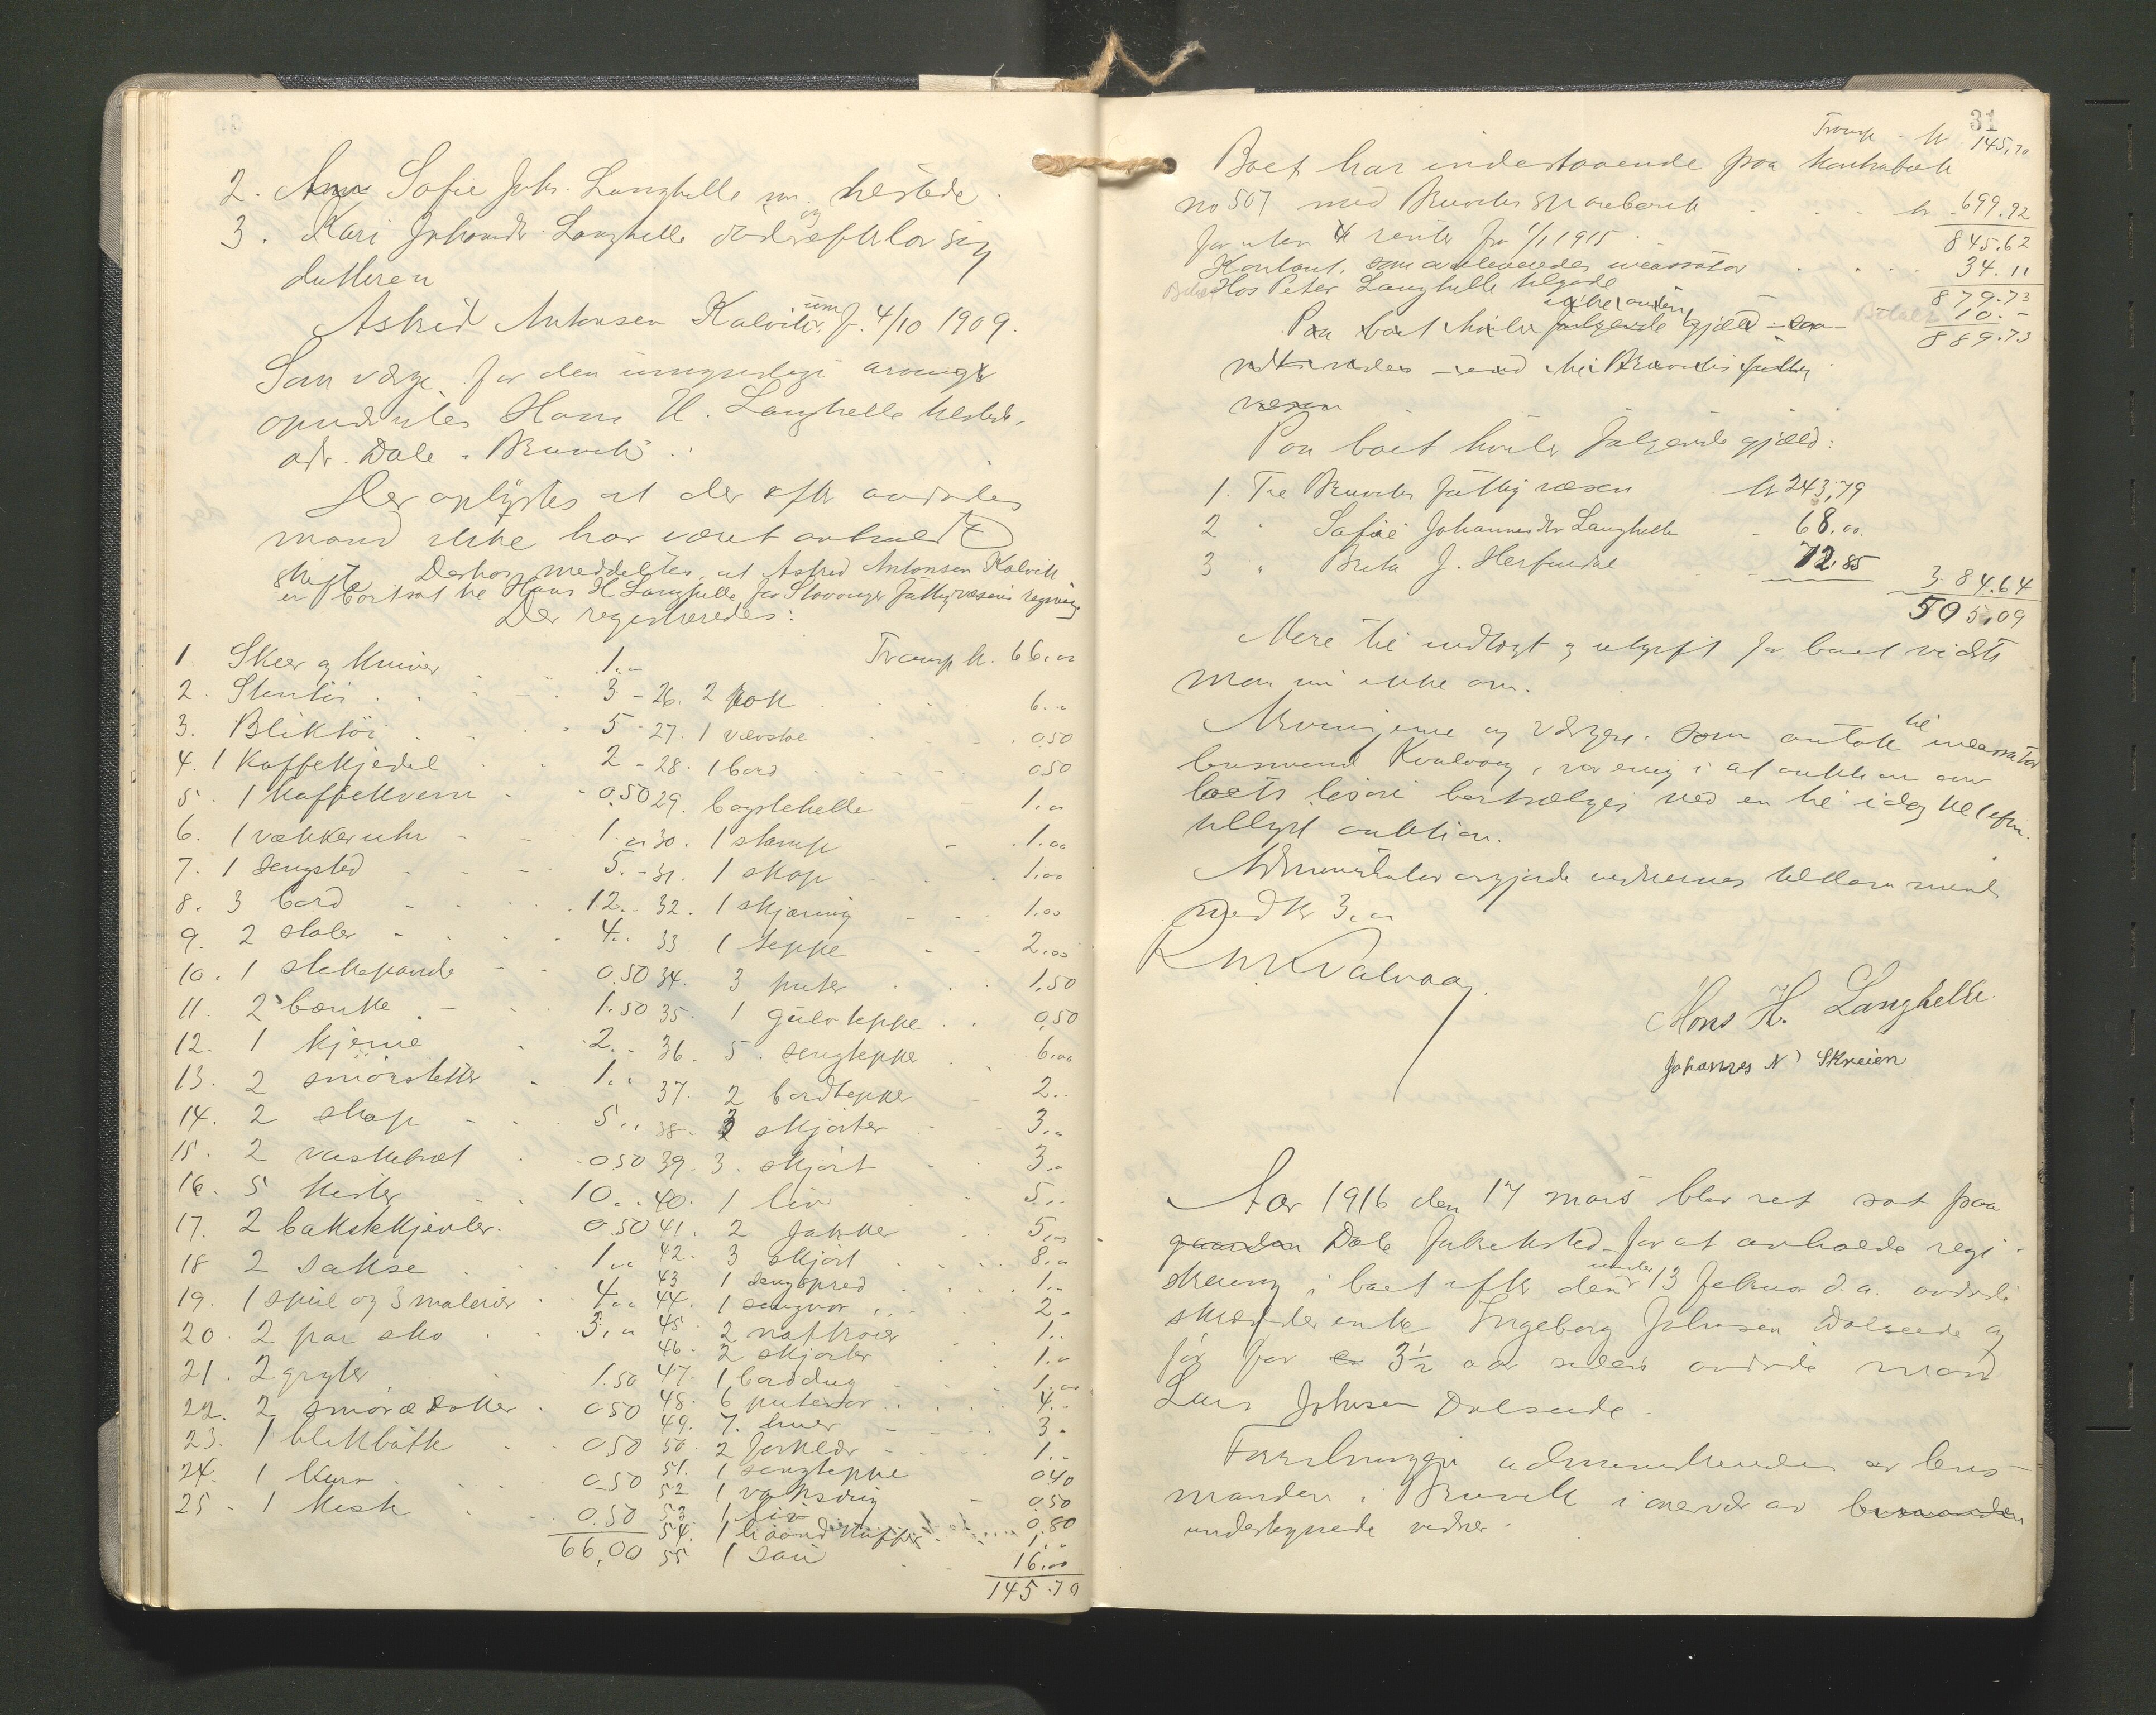 2. Sofie Joh. Langhelle hersteds.
3. Kari Johannesdr Langhelle død og efterlot sig
datteren
Astrid Antonsen Kalvik um. f. 4/10 1909.
Som værge for den umyndige arving
opnævntes Hans H. Langhelle hersteds,
adr. Dale - Bruvik.
Der oplystes at der efter avdødes
mand ikke har været anholdt
skifte. Derhos meddeltes, at Astrid Antonsen Kalvik
er bortsat til Hans H Langhelle for Stavanger fattigvæsens regning
Der registreredes:
Transp kr. 66.00
1 Skeer og kniver 1.-
2. Stentöi 3 -
3. Bliktöi 5 -
4. 1 Kaffekjedel 2 -
5. 1 Kaffekvern 0.50
6. 1 vækkeruhr 1.00
7. 1 sengsted 5.-
8. 3 bord 12.-
9. 2 stoler 4..
10. 1 stekepande 0.50
11. 2 bænke 1.50
12. 1 kjerne 2.-
13. 2 smörstetter 1..
14. 2 skap 5..
15. 2 vaskebræt 0.50
16. 5 kister 10..
17. 2 bakstekjevler. 0.50
18 2 sakse 1..
19. 1 speil og 3 malerier 4..
20. 2 par sko 3..
21. 2 gryter 1.50
22. 2 smörædsker 0.50
23. 1 blikbötte 0.50
24. 1 kurv 0.50
25 - 1 kiste 0.50
66,00
26. 2 rok 6..
27. 1 0.50
28. 1 bord 0.50
29. bagstehelle 1..
30. 1 stamp 1.00
31. 1 skap 1.00
32. 1 skjæring 1.00
33 1 teppe 2.00
34. 3 puter 1.50
35. 1 gulvteppe 0.50
36. 5 sengtepper 6.00
37. 2 bordtepper 2..
38. 3 skjorter 3..
39. 3. skjört 3..
40. 1 liv 5..
41. 2 jakker 5..
42. 3 skjört 8..
43 1 sengspred 1..
44. 1 sengvor 2-
45 2 nattröier 1..
46. 2 skjorter 1..
47. 1 borddug 1..
48. 6 putevor 4..
49. 7. huer 3 -
50. 2 forklær 1..
51. 1 sengteppe 0.40
52 1 voksdug 0.50
53. 1 0.80
54. 1 haandkuffert 1..
55 1 sau 16.00
145.70
31
Transp - kr. 145,70
Boet har indestaaende paa kontrabok
no 507 med Bruviks sparebank kr 699.92
for uten renter fra 1/1 1915. 845.62
Kontant, som avleveredes incassator 34.11
Hos Peter Langhelle tilgode 879.73
10.-
Paa boet hviler følgende gjæld 889.73
til Bruviks fattig
væsen
Paa boet hviler følgende gjæld:
1. Til Bruviks fattigvæsen kr 243,79
2 " Sofie Johannesdr Langhelle 68.00.
3 " Brita J. Herfindal 72.85
3 84.64
505.09
Mere til indtægt og utgift for boet vidste
man nu ikke om.
Arvingerne og værgen som antok til incassator
lensmand Kvalvaag, var enig i at
boets lösöre bortsælges ved en til idag kl 1 efm.
tillyst auktion.
Administrator avgjorde vidnernes tilkommende
med kr 3.00
Kvalvaag.
Hans H. Langhelle.
Johannes N Skreien
Aar 1916 den 17 mars blev ret sat paa
gaarden Dale fabriksted for at avholde regi-
strering i boet efter den under 13 februar d.a. avdöde
skrædderenke Ingeborg Johnsen Dalseide og
för for 3½ aar siden avdöde mand
Lars Johnsen Dalseide.
Forretningen administreredes av lens-
manden i Bruvik i nærvær av lensmanden
undertegnede vidner.